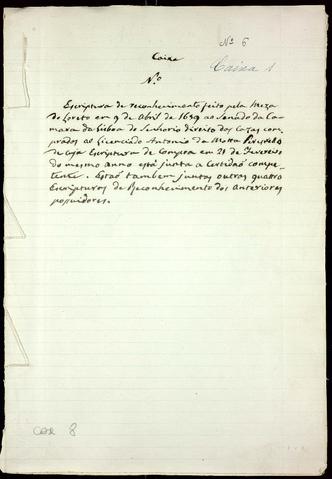 Nº 6
Caixa
Caixa 1
Nº
Escriptura de reconhecimento feito pela Meza
do Loreto em 9 de Abril de 1659 ao Senado da Ca-
mara da Lisboa do Senhorio direito das Cazas com-
pradas ao Licenciado Antonio da Motta
de cuja Escriptura de Compra em 21 de Fevereiro
do mesmo anno está junta a Certidaõ compe-
tente. Estaõ tambem juntas outras quatro
Escripturas de Reconhecimento dos anteriores
possuidores.
8